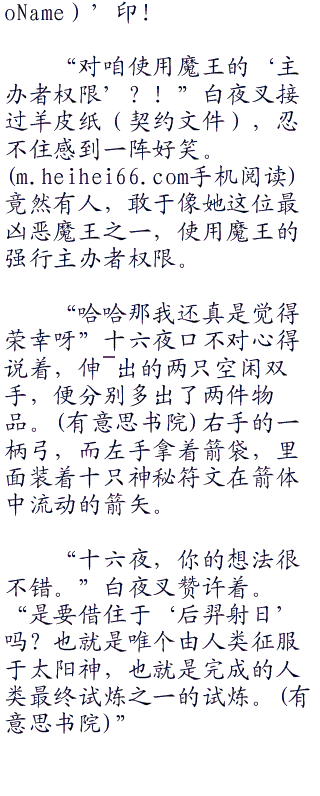 oName）’印！
“对咱使用魔王的‘主
办者权限’？！”白夜叉接
过羊皮纸（契约文件），忍
不住感到一阵好笑。
(m.heihei66.com手机阅读)
竟然有人，敢于像她这位最
凶恶魔王之一，使用魔王的
强行主办者权限。
“哈哈那我还真是觉得
荣幸呀”十六夜口不对心得
说着，伸¯出的两只空闲双
手，便分别多出了两件物
品。(有意思书院)右手的一
柄弓，而左手拿着箭袋，里
面装着十只神秘符文在箭体
中流动的箭矢。
“十六夜，你的想法很
不错。”白夜叉赞许着。
“是要借住于‘后羿射日’
吗？也就是唯个由人类征服
于太阳神，也就是完成的人
类最终试炼之一的试炼。(有
意思书院)”